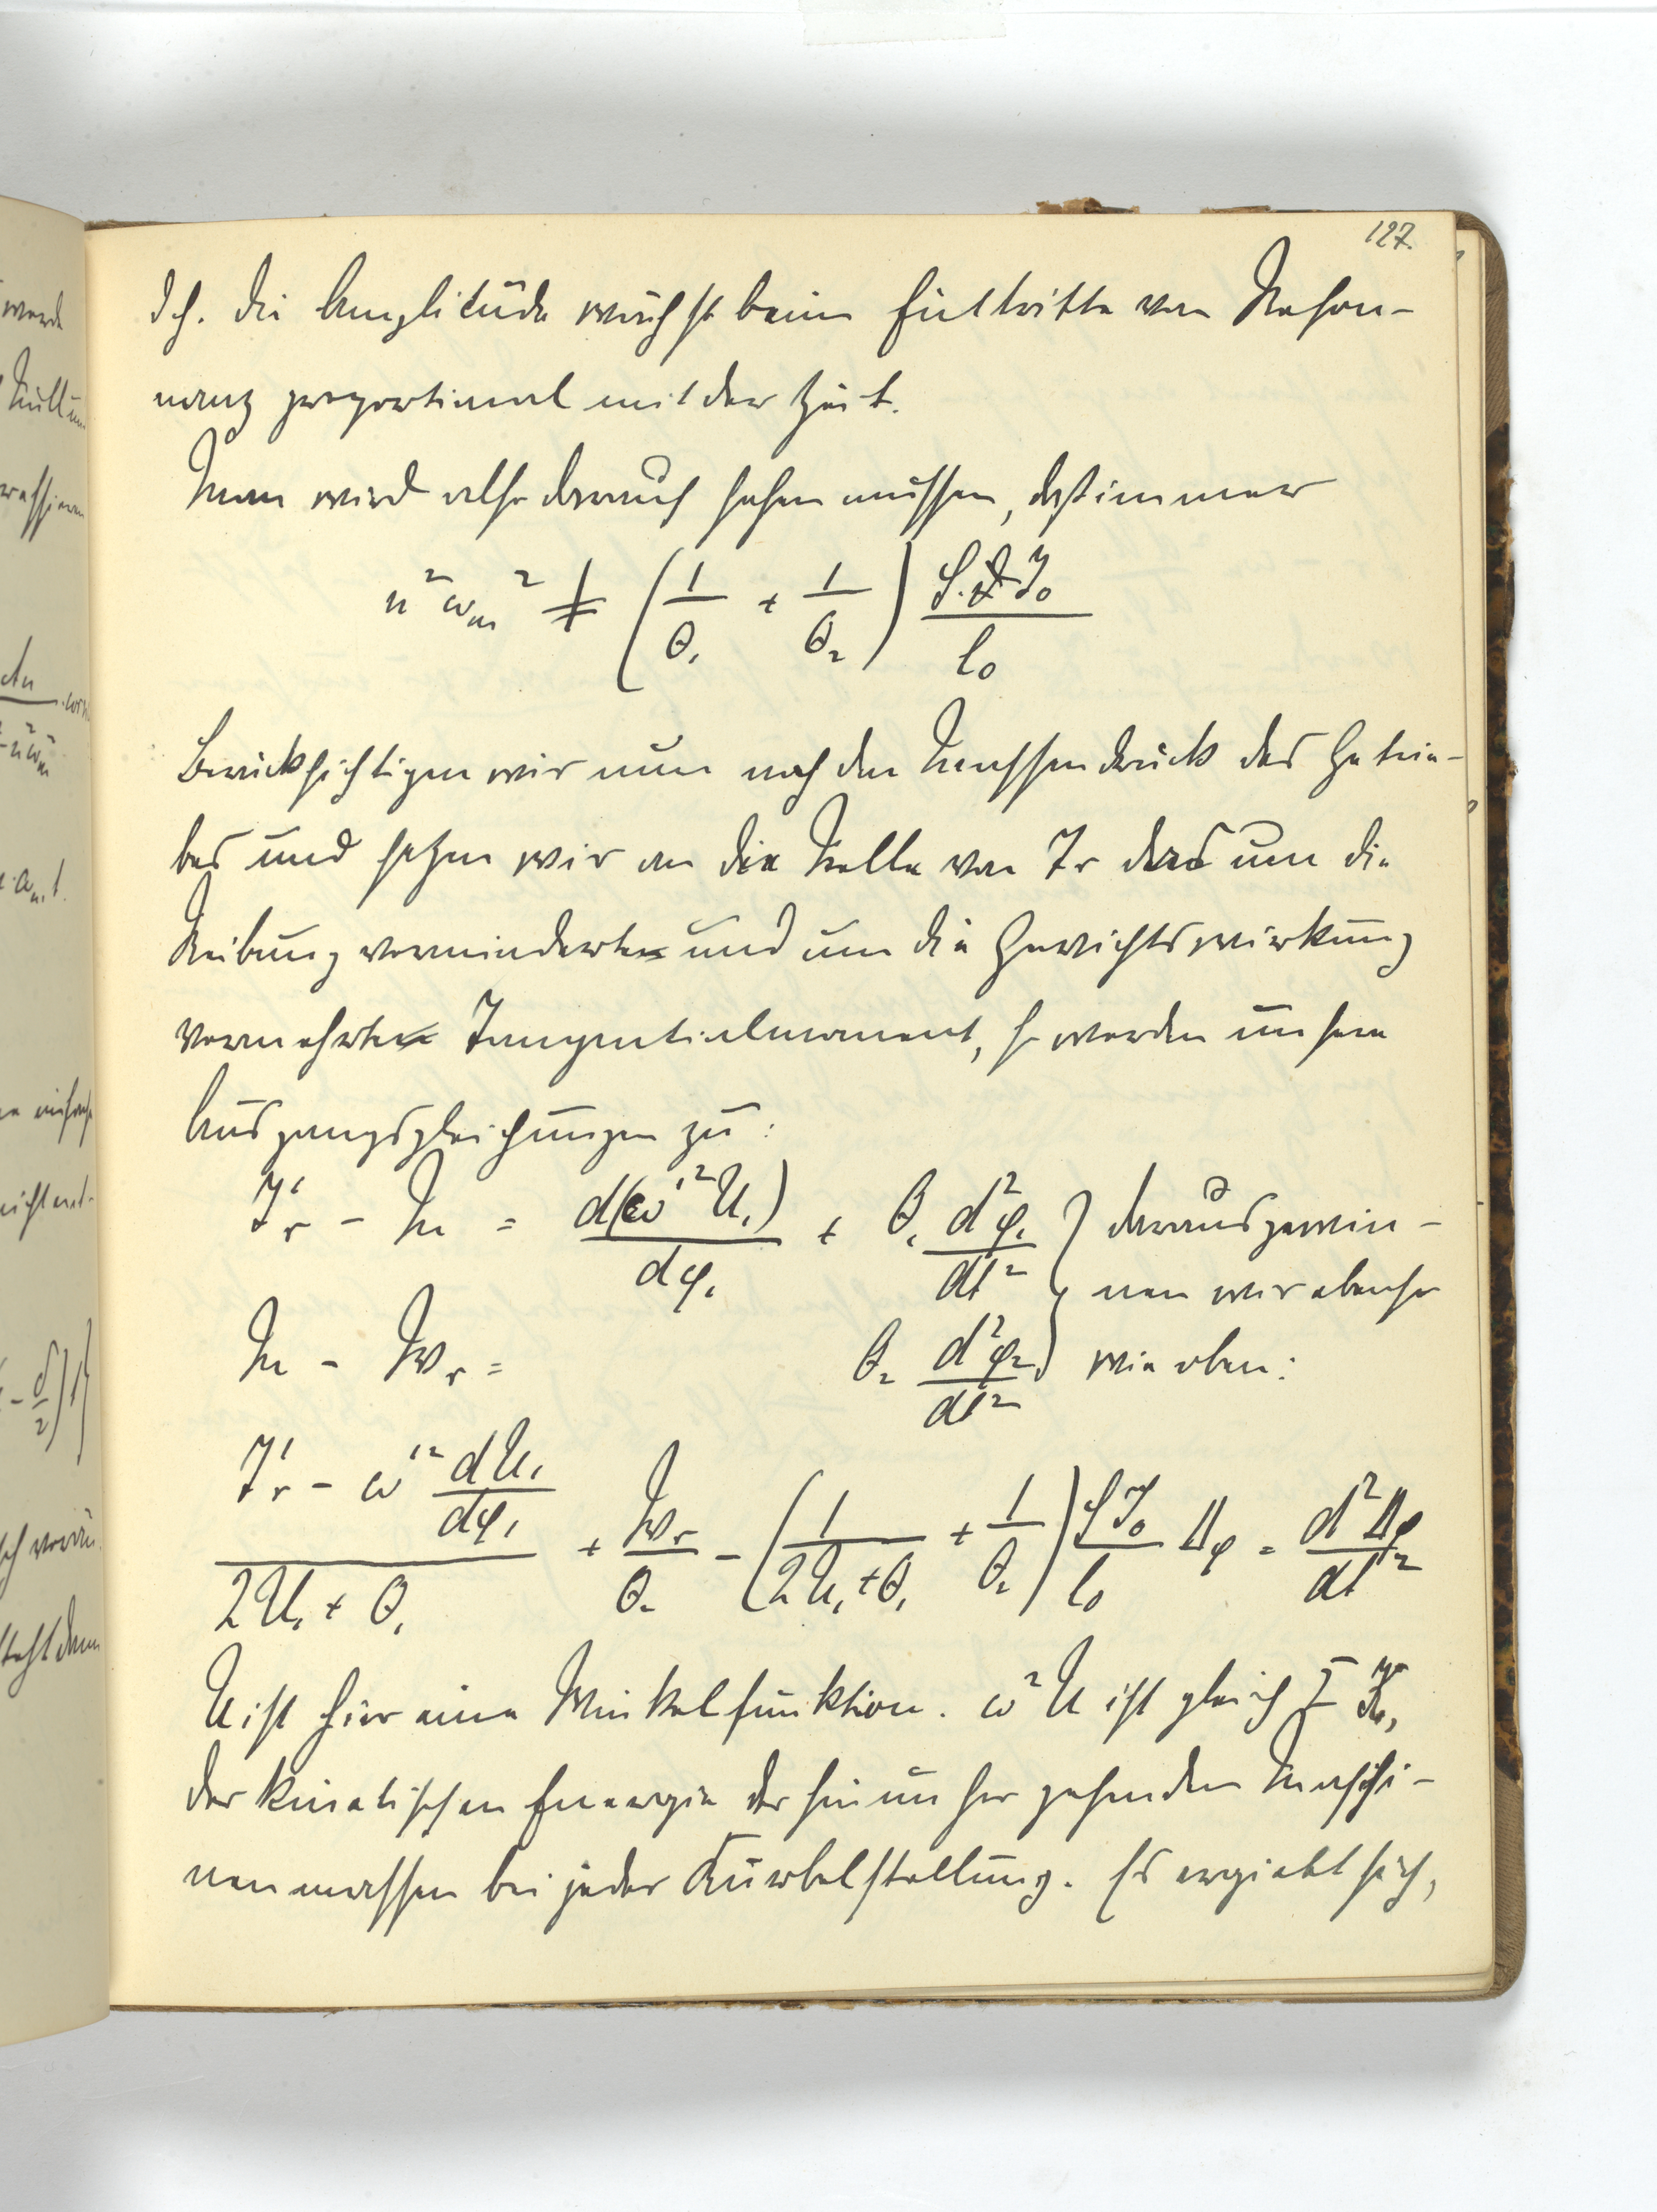 127.
d. h. die Amplitude wächst beim Eintritte von Reson-
nanz proportional mit der Zeit.
Man wird also darauf sehen müssen, daß immer
n² ωm² ≠ (1/θ₁ + 1/θ₂) G.J₀/l₀
Berücksichtigen wir nun noch den Massendruck des Getrie-
bes und setzen wir an die Stelle von Tr das um die
Reibung verminderte und um die Gewichtswirkung
vermehrte Tangentialmoment, so werden unsere
Ausgangsgleichungen zu:
T'r - M = d(ω'² U₁)/dφ₁ + θ₁ d²φ₁/dt² } daraus gewin-
nen wir ebenso
M - Wr = θ₂ d²φ₂/dt² wie oben:
(T'r - ω'² dU₁/dφ₁)/(2U₁ + θ₁) + Wr/θ₂ - (1/(2U₁+θ₁) + 1/θ₂) GJ₀/l₀ Δφ = d²Δφ/dt²
U ist hier eine Winkelfunktion. ω²U ist gleich
der kinetischen Energie der hin un her gehenden Maschi-
nenmassen bei jeder Kurbelstellung. Es ergiebt sich,